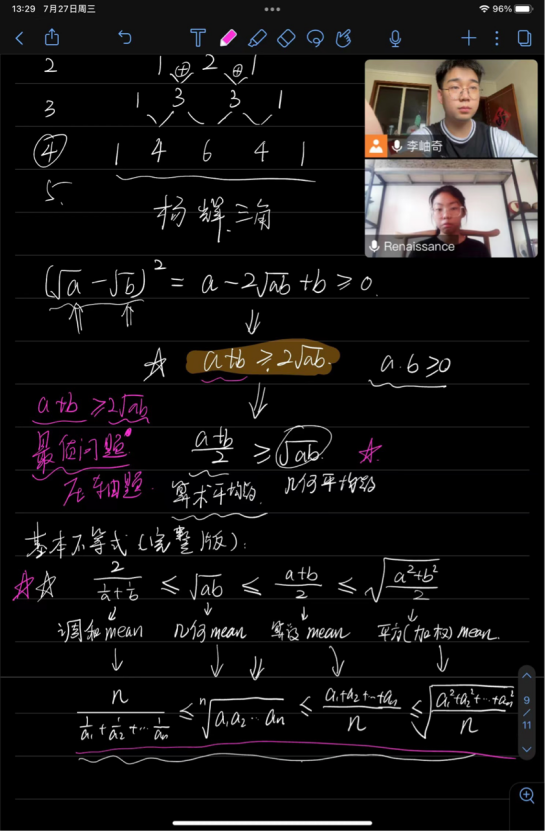 13:29 7月27日周三
96%
李岫奇
Renaissance
2 1 ⊕ 2 ⊕ 1
3 1 3 3 1
④ 1 4 6 4 1
5.
杨辉三角
(√a − √b)² = a − 2√ab + b ≥ 0.
☆ a+b ≥ 2√ab. a.b ≥ 0
a+b ≥ 2√ab
最值问题
(a+b)/2 ≥ √ab. ☆
算术平均数 几何平均数
基本不等式(完整版):
☆☆ 2/(1/a + 1/b) ≤ √ab ≤ (a+b)/2 ≤ √((a²+b²)/2)
调和mean 几何mean 算数mean 平方(加权)mean.
n/(1/a₁ + 1/a₂ + ⋯ 1/aₙ) ≤ ⁿ√(a₁a₂⋯aₙ) ≤ (a₁+a₂+⋯+aₙ)/n ≤ √((a₁²+a₂²+⋯+aₙ²)/n)
9/11